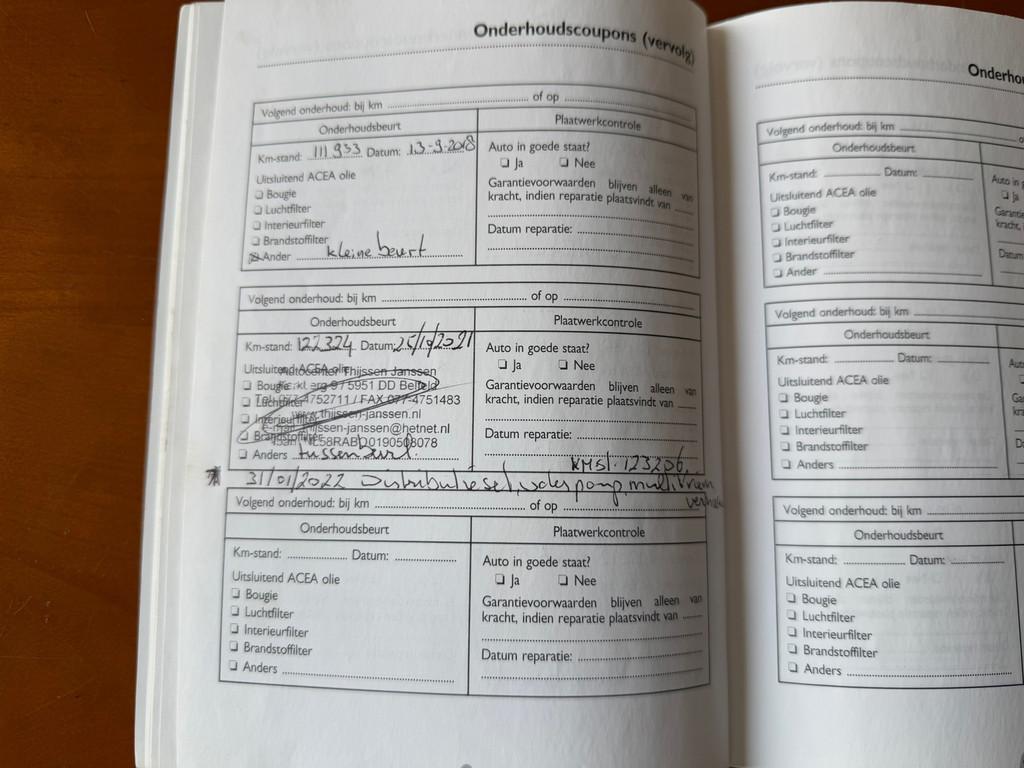 Onderhoudscoupons (vervolg)
Volgend onderhoud: bij km of op
Onderhoudsbeurt Plaatwerkcontrole
Km-stand: 111 933 Datum: 13-9-2018 Auto in goede staat?
❏ Ja ❏ Nee
Uitsluitend ACEA olie
❏ Bougie Garantievoorwaarden blijven alleen van
❏ Luchtfilter kracht, indien reparatie plaatsvindt van
❏ Interieurfilter
❏ Brandstoffilter Datum reparatie:
❏ Ander kleine beurt
Volgend onderhoud: bij km of op
Onderhoudsbeurt Plaatwerkcontrole
Km-stand: 122324 Datum: Auto in goede staat?
❏ Ja ❏ Nee
Uitsluitend ACEA olie
Autocenter Thijssen Janssen
❏ Bougie 5951 DD Belfeld Garantievoorwaarden blijven alleen van
❏ Luchtfilter 4752711 / FAX 077-4751483 kracht, indien reparatie plaatsvindt van
❏ Interieurfilter www.thijssen-janssen.nl
thijssen-janssen@hetnet.nl Datum reparatie:
❏ Brandstoffilter
❏ Anders tussenbeurt.
KMst. 123206
31/01/2022 Distributieset, waterpomp, multiriem
Volgend onderhoud: bij km of op
Onderhoudsbeurt Plaatwerkcontrole
Km-stand: Datum: Auto in goede staat?
❏ Ja ❏ Nee
Uitsluitend ACEA olie
❏ Bougie Garantievoorwaarden blijven alleen van
❏ Luchtfilter kracht, indien reparatie plaatsvindt van
❏ Interieurfilter
❏ Brandstoffilter Datum reparatie:
❏ Anders
Onderho
Volgend onderhoud: bij km
Onderhoudsbeurt
Km-stand: Datum: Auto in g
Uitsluitend ACEA olie ❏ Ja
❏ Bougie Garantie
❏ Luchtfilter kracht,
❏ Interieurfilter
❏ Brandstoffilter Datum
❏ Ander
Volgend onderhoud: bij km
Onderhoudsbeurt
Km-stand: Datum: Aut
Uitsluitend ACEA olie
❏ Bougie
❏ Luchtfilter
❏ Interieurfilter
❏ Brandstoffilter
❏ Anders
Volgend onderhoud: bij km
Onderhoudsbeurt
Km-stand: Datum:
Uitsluitend ACEA olie
❏ Bougie
❏ Luchtfilter
❏ Interieurfilter
❏ Brandstoffilter
❏ Anders